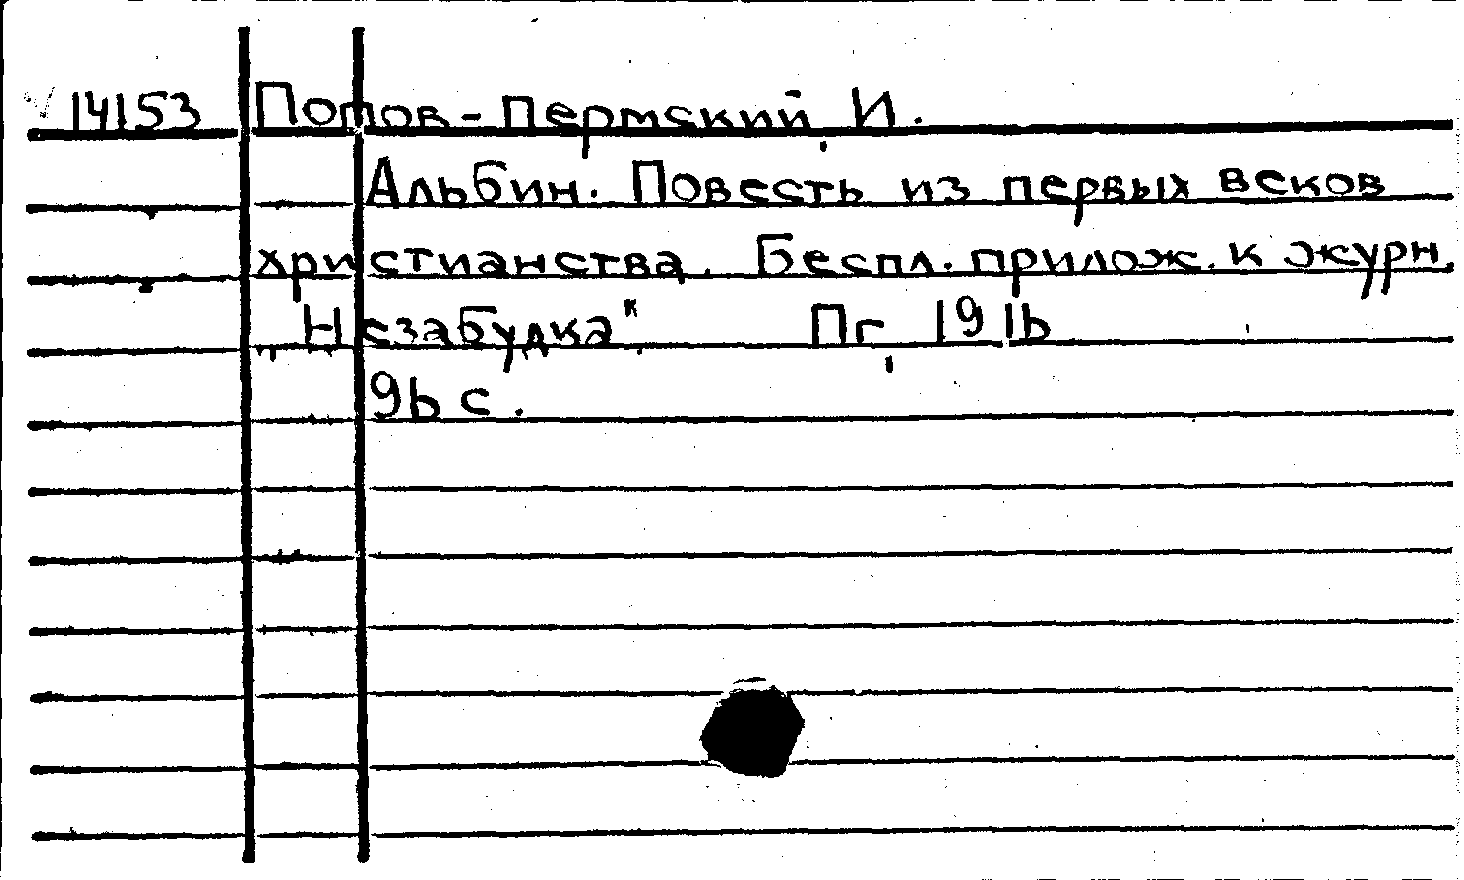 14153 Попов-Пермский, И.
Альбин. Повесть из первых веков
христианства. Беспл. прилож. к журн.
"Незабудка" Пг, 1916
96 с.